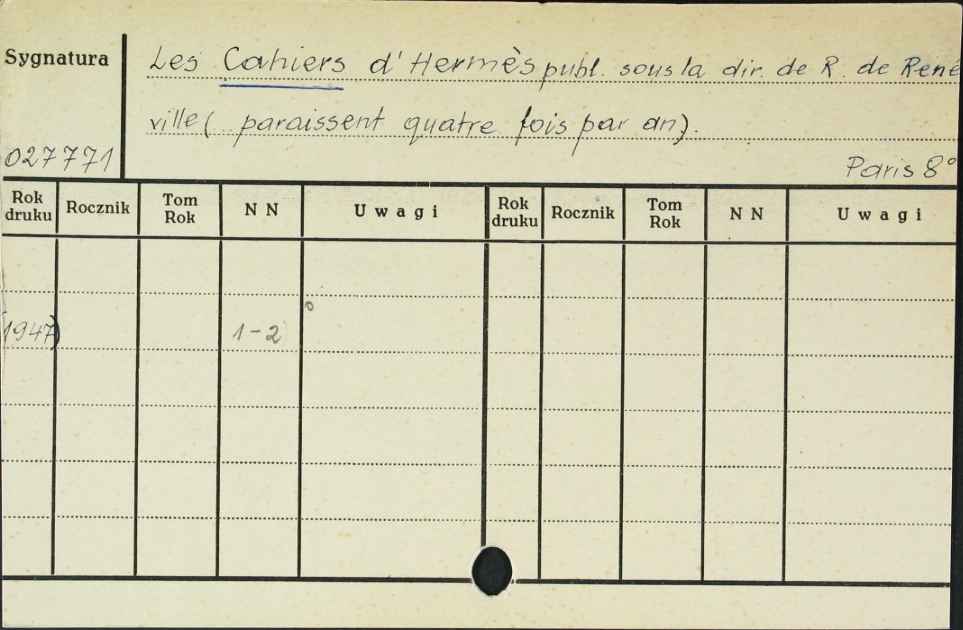 Sygnatura
Les Cahiers d'Hermès publ. sous la dir. de R. de René
ville ( paraissent quatre fois par an).
027771
Paris 8°
Rok druku Rocznik Tom Rok N N Uwagi Rok druku Rocznik Tom Rok N N Uwagi
(1947) 1-2